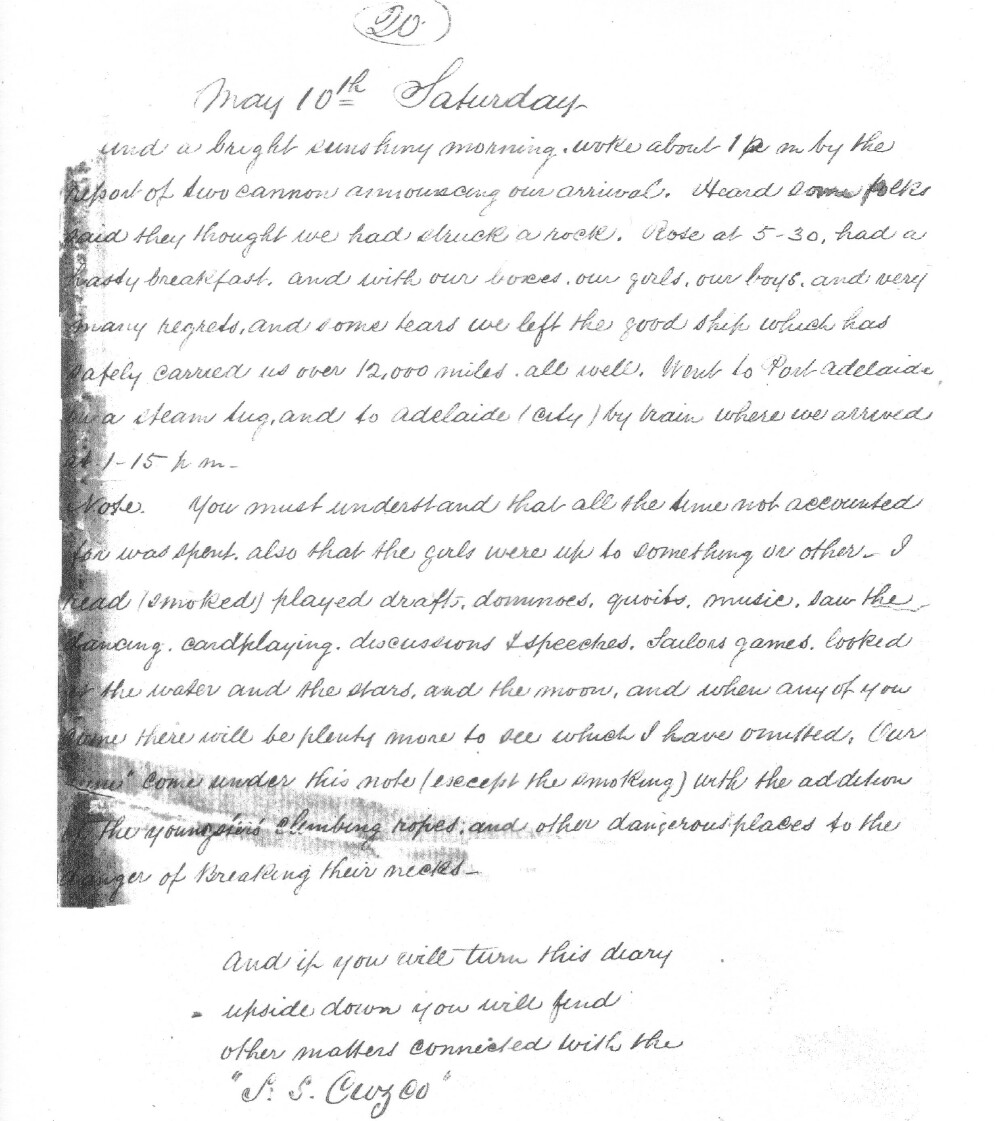 20
May 10th Saturday
and a bright sunshiny morning. woke about 1 p m by the
report of two cannon announcing our arrival. Heard some folks
said they thought we had struck a rock. Rose at 5-30, had a
hasty breakfast. and with our boxes. our girls. our boys. and very
many regrets, and some tears we left the good ship which has
safely carried us over 12,000 miles. all well. Went to Port Adelaide
a steam tug, and to Adelaide (city) by train where we arrived
at 1-15 p m-
Note. You must understand that all the time not accounted
for was spent. also that the girls were up to something or other- I
read (smoked) played draft. dominoes. quoits. music. saw the
dancing. cardplaying. discussions & speeches. Sailors games. looked
at the water and the stars. and the moon. and when any of you
come there will be plenty more to see which I have omitted. Our
come under this note (except the smoking) with the addition
of the youngsters climbing ropes. and other dangerous places to the
danger of Breaking their necks-
And if you will turn this diary
upside down you will find
other matters connected with the
"S. S. Cuzco"